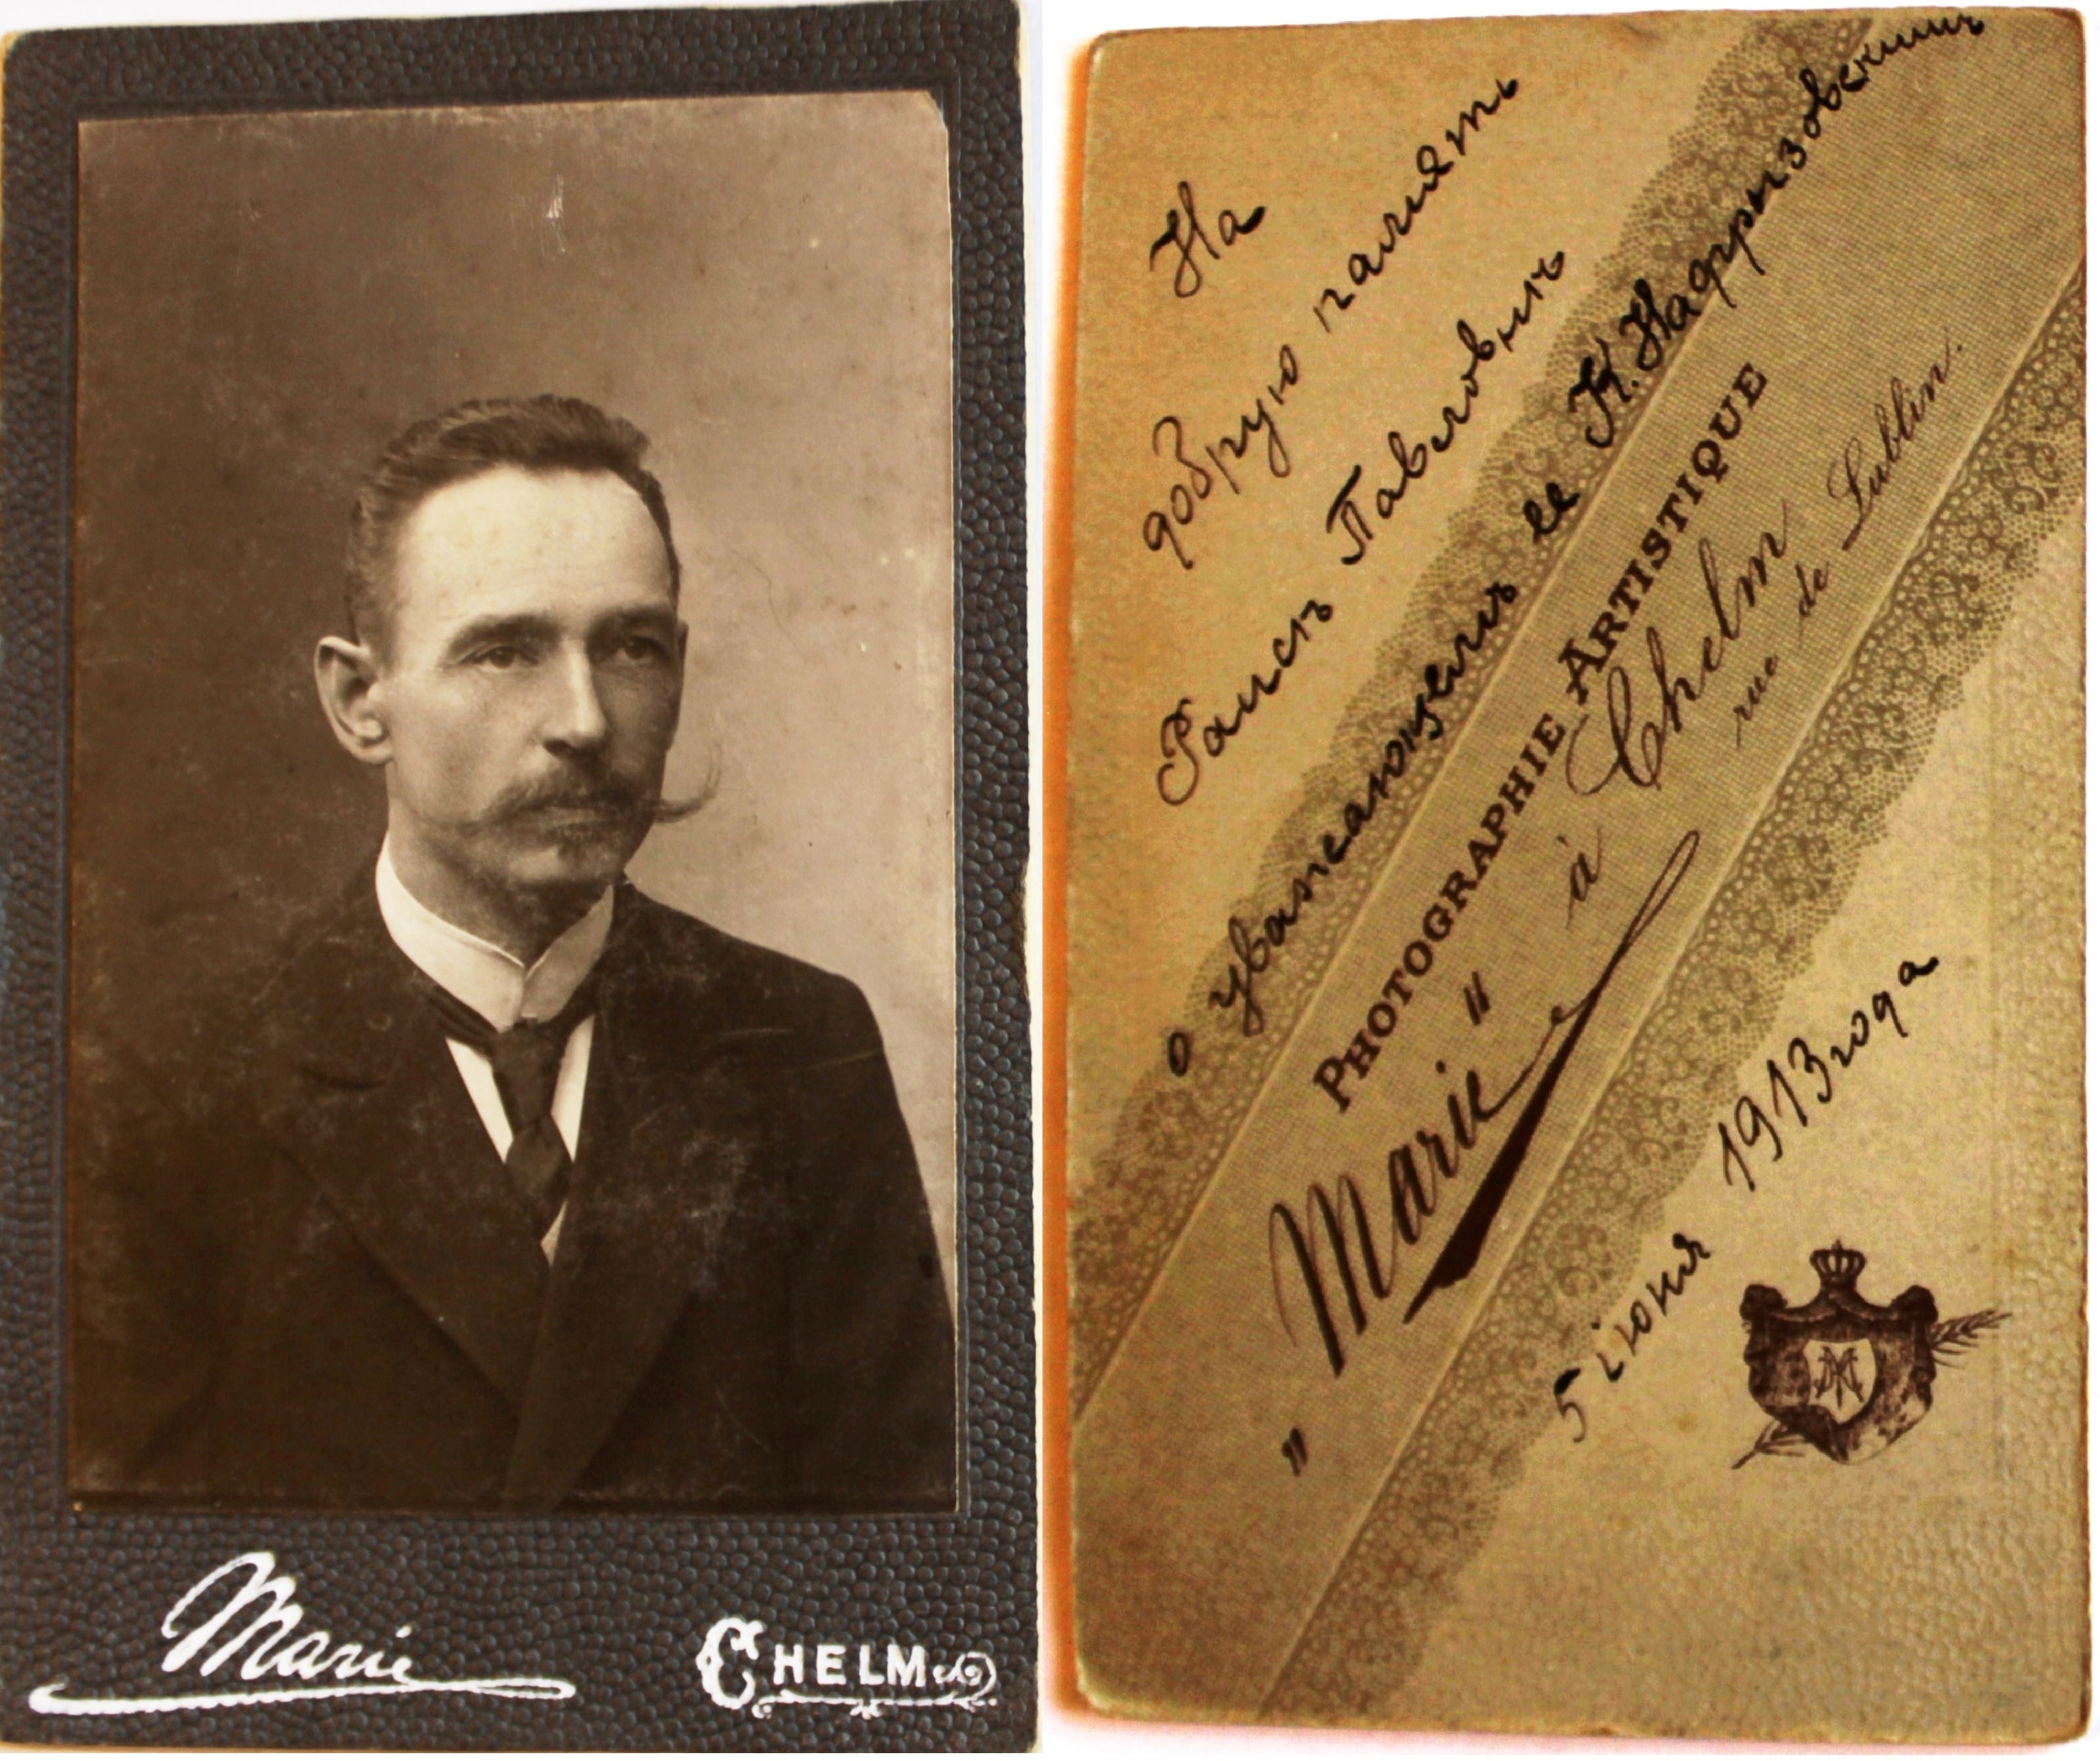 Marie
CHELM
На
добрую память
Раисѣ Павловнѣ
о уважающемъ ее
PHOTOGRAPHIE ARTISTIQUE
"Marie" à Chelm
rue de Lublin.
5 іюня 1913 года